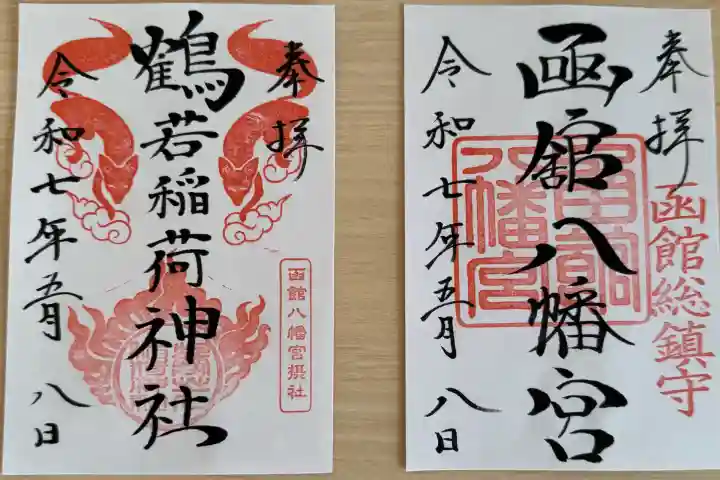 奉拝
函館総鎮守
函館八幡宮
八幡宮
令和七年五月 八日
奉拝
鶴若稲荷神社
函館八幡宮摂社
令和七年五月 八日